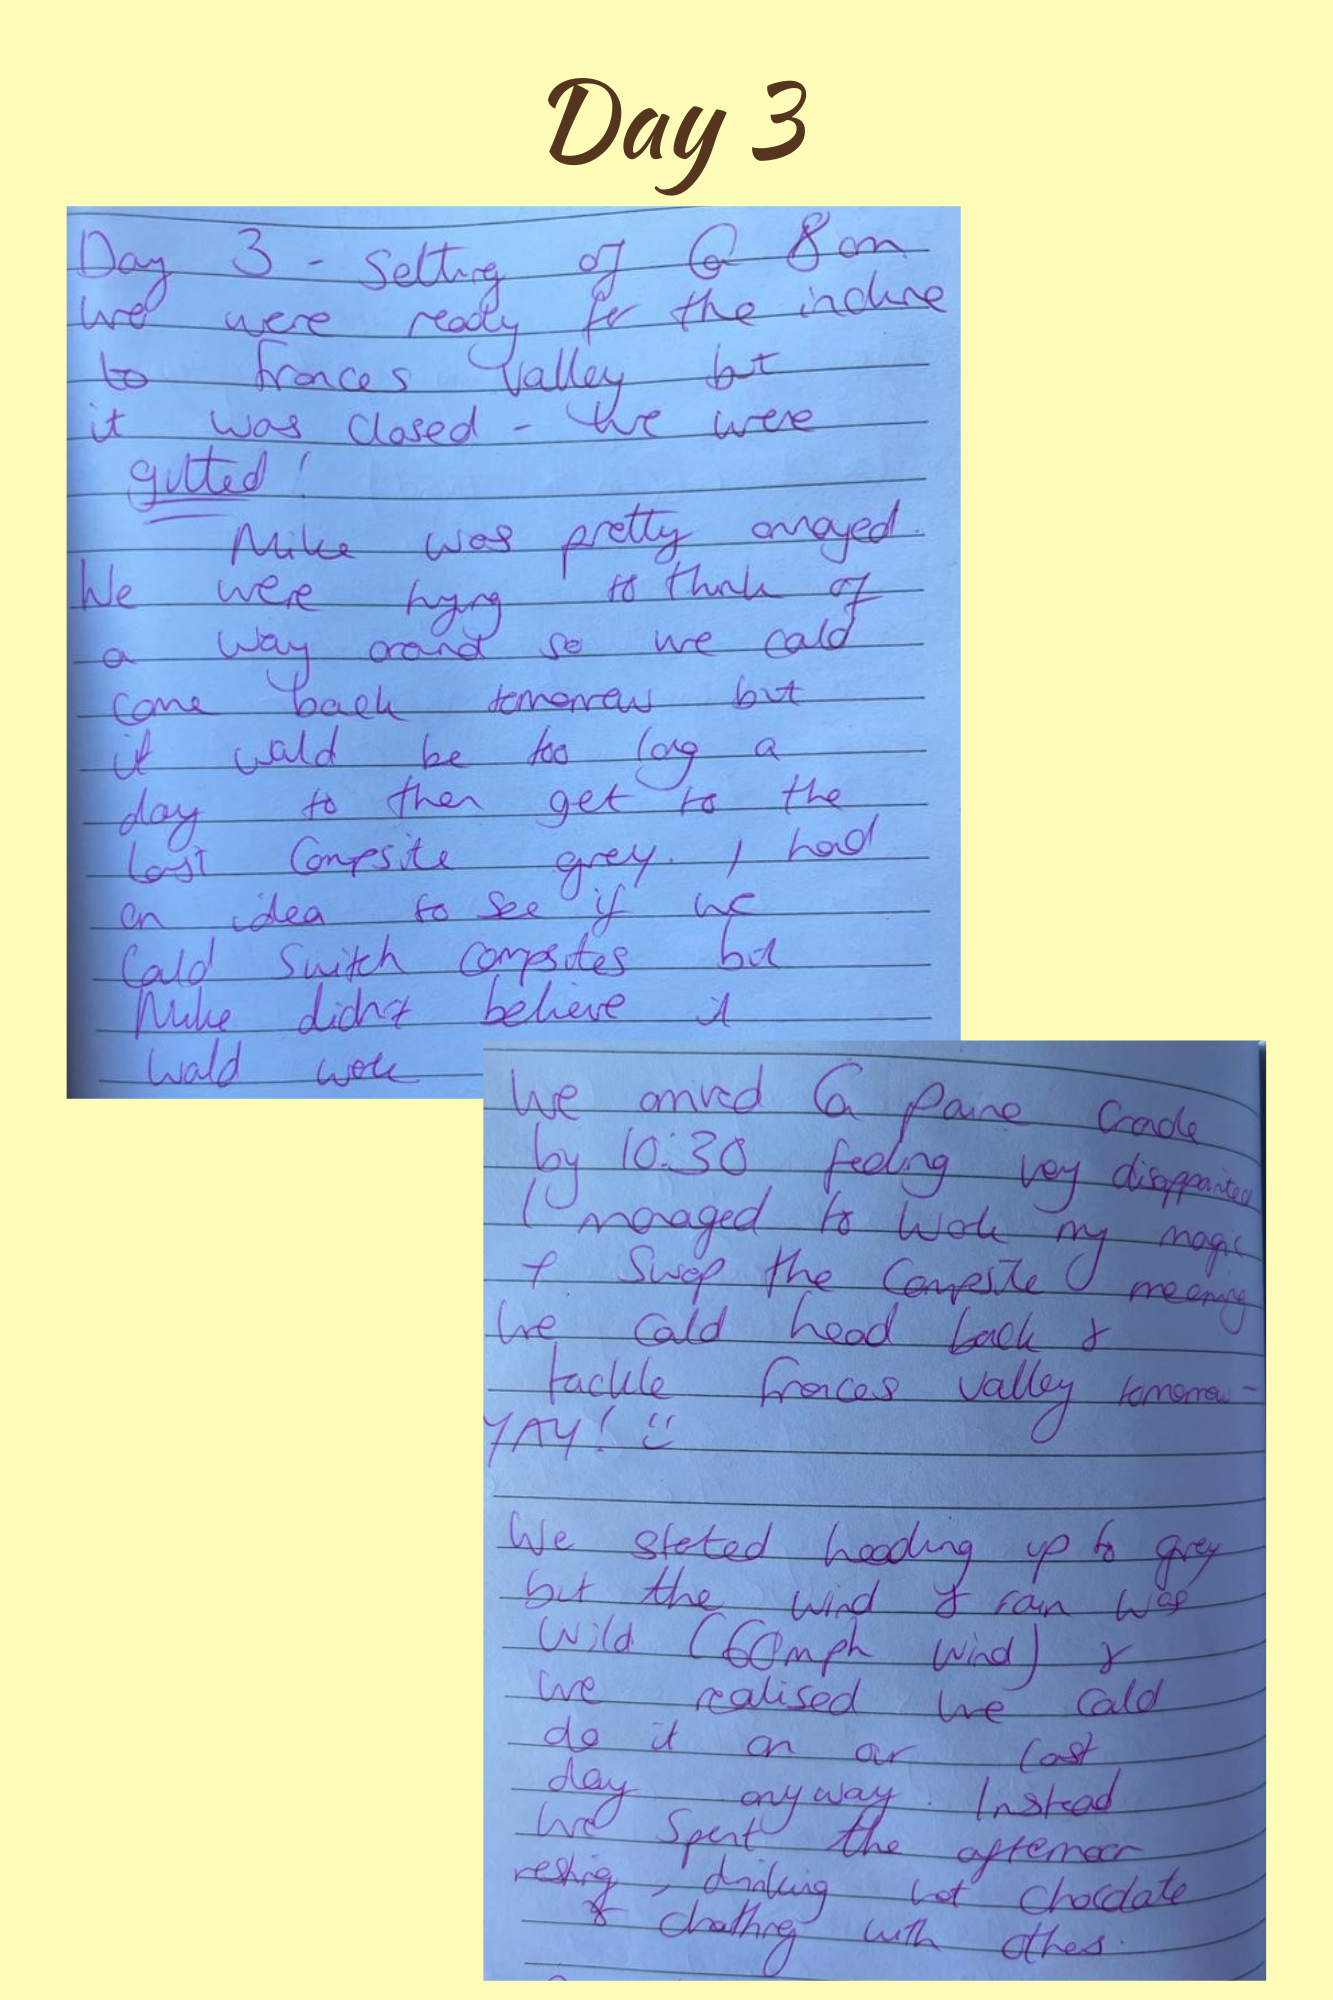 Day 3
Day 3 - Setting of @ 8am
We were ready for the incline
to Frances Valley but
it was closed - We were
gutted!
Mike was pretty annoyed.
We were trying to think of
a way around so we could
come back tomorrow but
it would be too long a
day to then get to the
last Campsite grey. I had
an idea to see if we
Could Switch campsites but
Mike didn't believe it
would work
We arrived @ Paine Grade
by 10:30 feeling very disappointed
I managed to work my magic
+ Swap the Campsite meaning
We could head back &
tackle Frances Valley tomorrow -
YAY! :)
We started heading up to grey
but the wind & rain was
Wild (60mph wind) &
we realised we could
do it on our last
day anyway. Instead
We Spent the afternoon
resting, drinking hot Chocolate
& chatting with others.